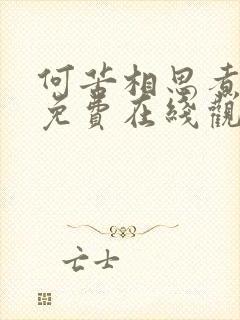 何苦相思煮
免費在綫觀
亡士